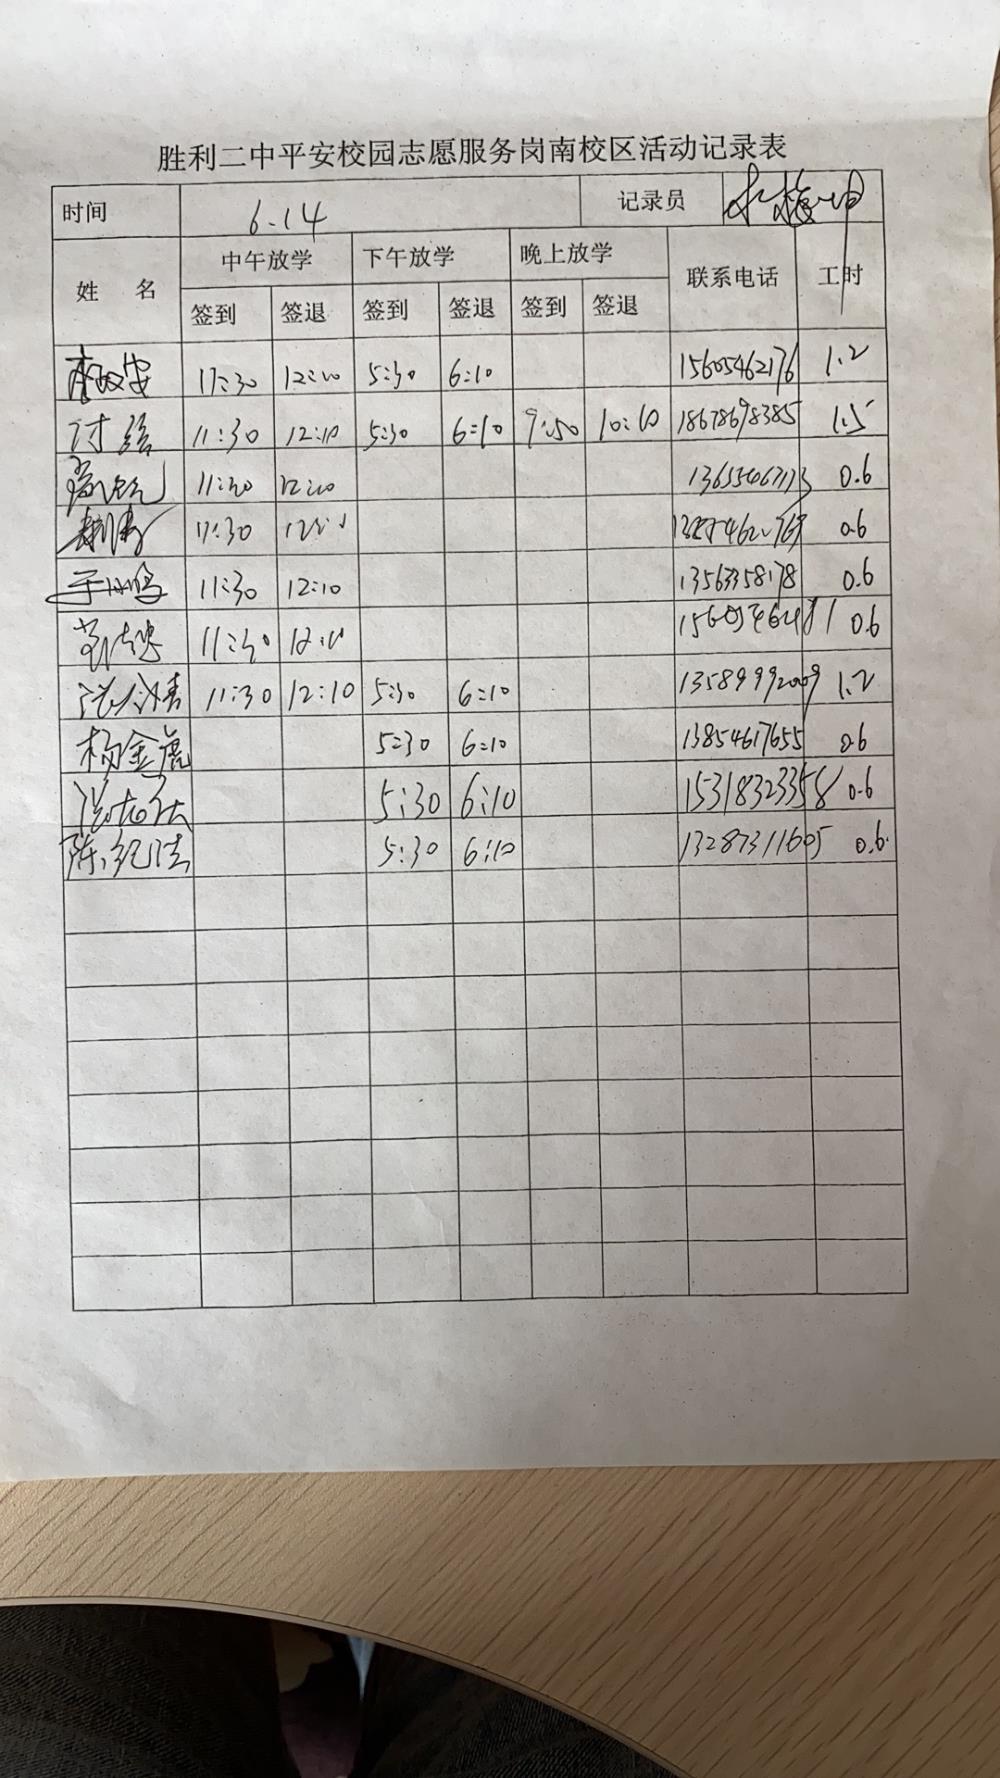 胜利二中平安校园志愿服务岗南校区活动记录表
时间 6.14 记录员
姓 名 中午放学 下午放学 晚上放学 联系电话 工时
签到 签退 签到 签退 签到 签退
11:30 12:10 5:30 6:10 15605462176 1.2
11:30 12:10 5:30 6:10 9:50 10:10 18678698385 1.5
11:30 12:10 0.6
11:30 0.6
11:30 12:10 13563358178 0.6
11:30 12:10 0.6
11:30 12:10 5:30 6:10 13589992009 1.2
杨金虎 5:30 6:10 13854617655 0.6
5:30 6:10 15318323358 0.6
陈纪法 5:30 6:10 13287311605 0.6